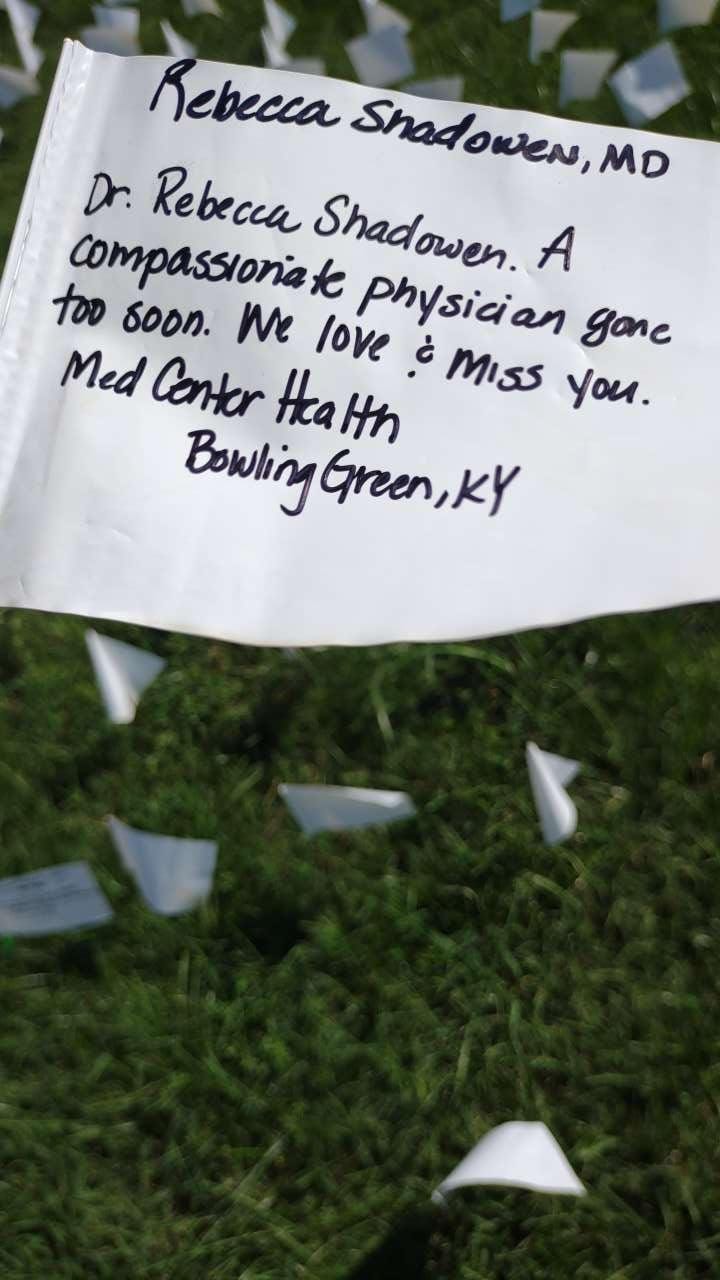 Rebecca Shadowen, MD
Dr. Rebecca Shadowen. A
compassionate physician gone
too soon. We love & Miss you.
Med Center Health
Bowling Green, KY